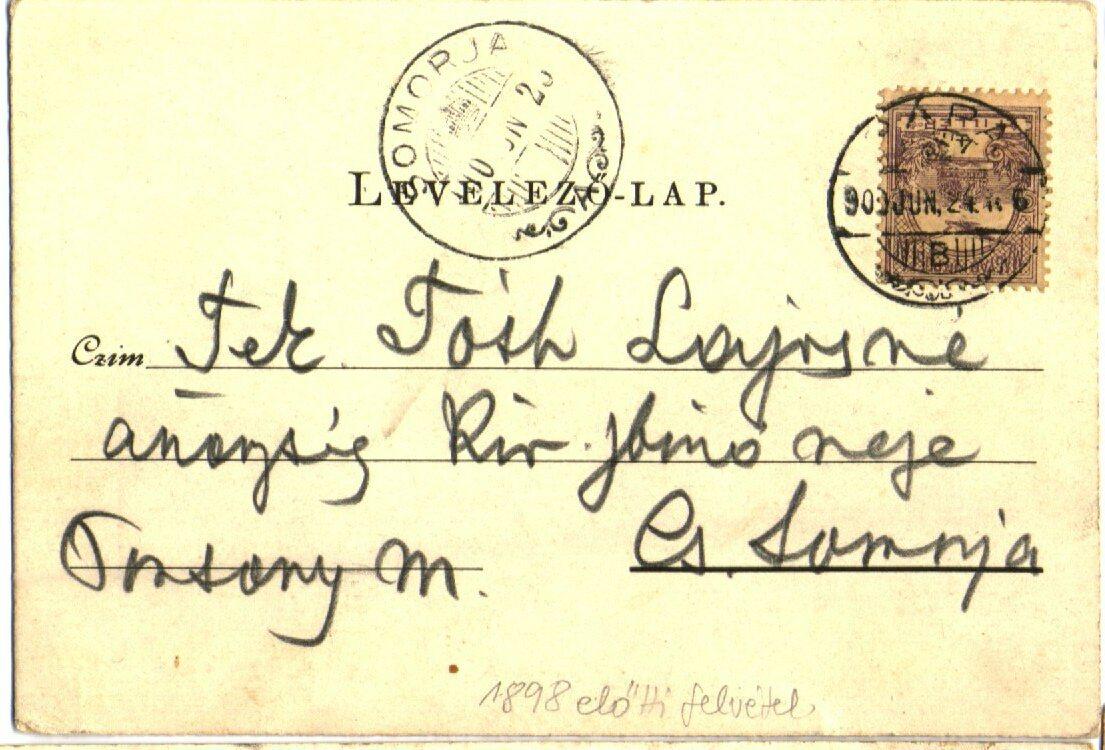 SOMORJA
LEVELEZŐ-LAP.
JUN. 24.
B
Czim Tek. Tóth Lajosné
kir. jbiró neje
Pozsony m. Cs. Somorja
1898 előtti felvétel